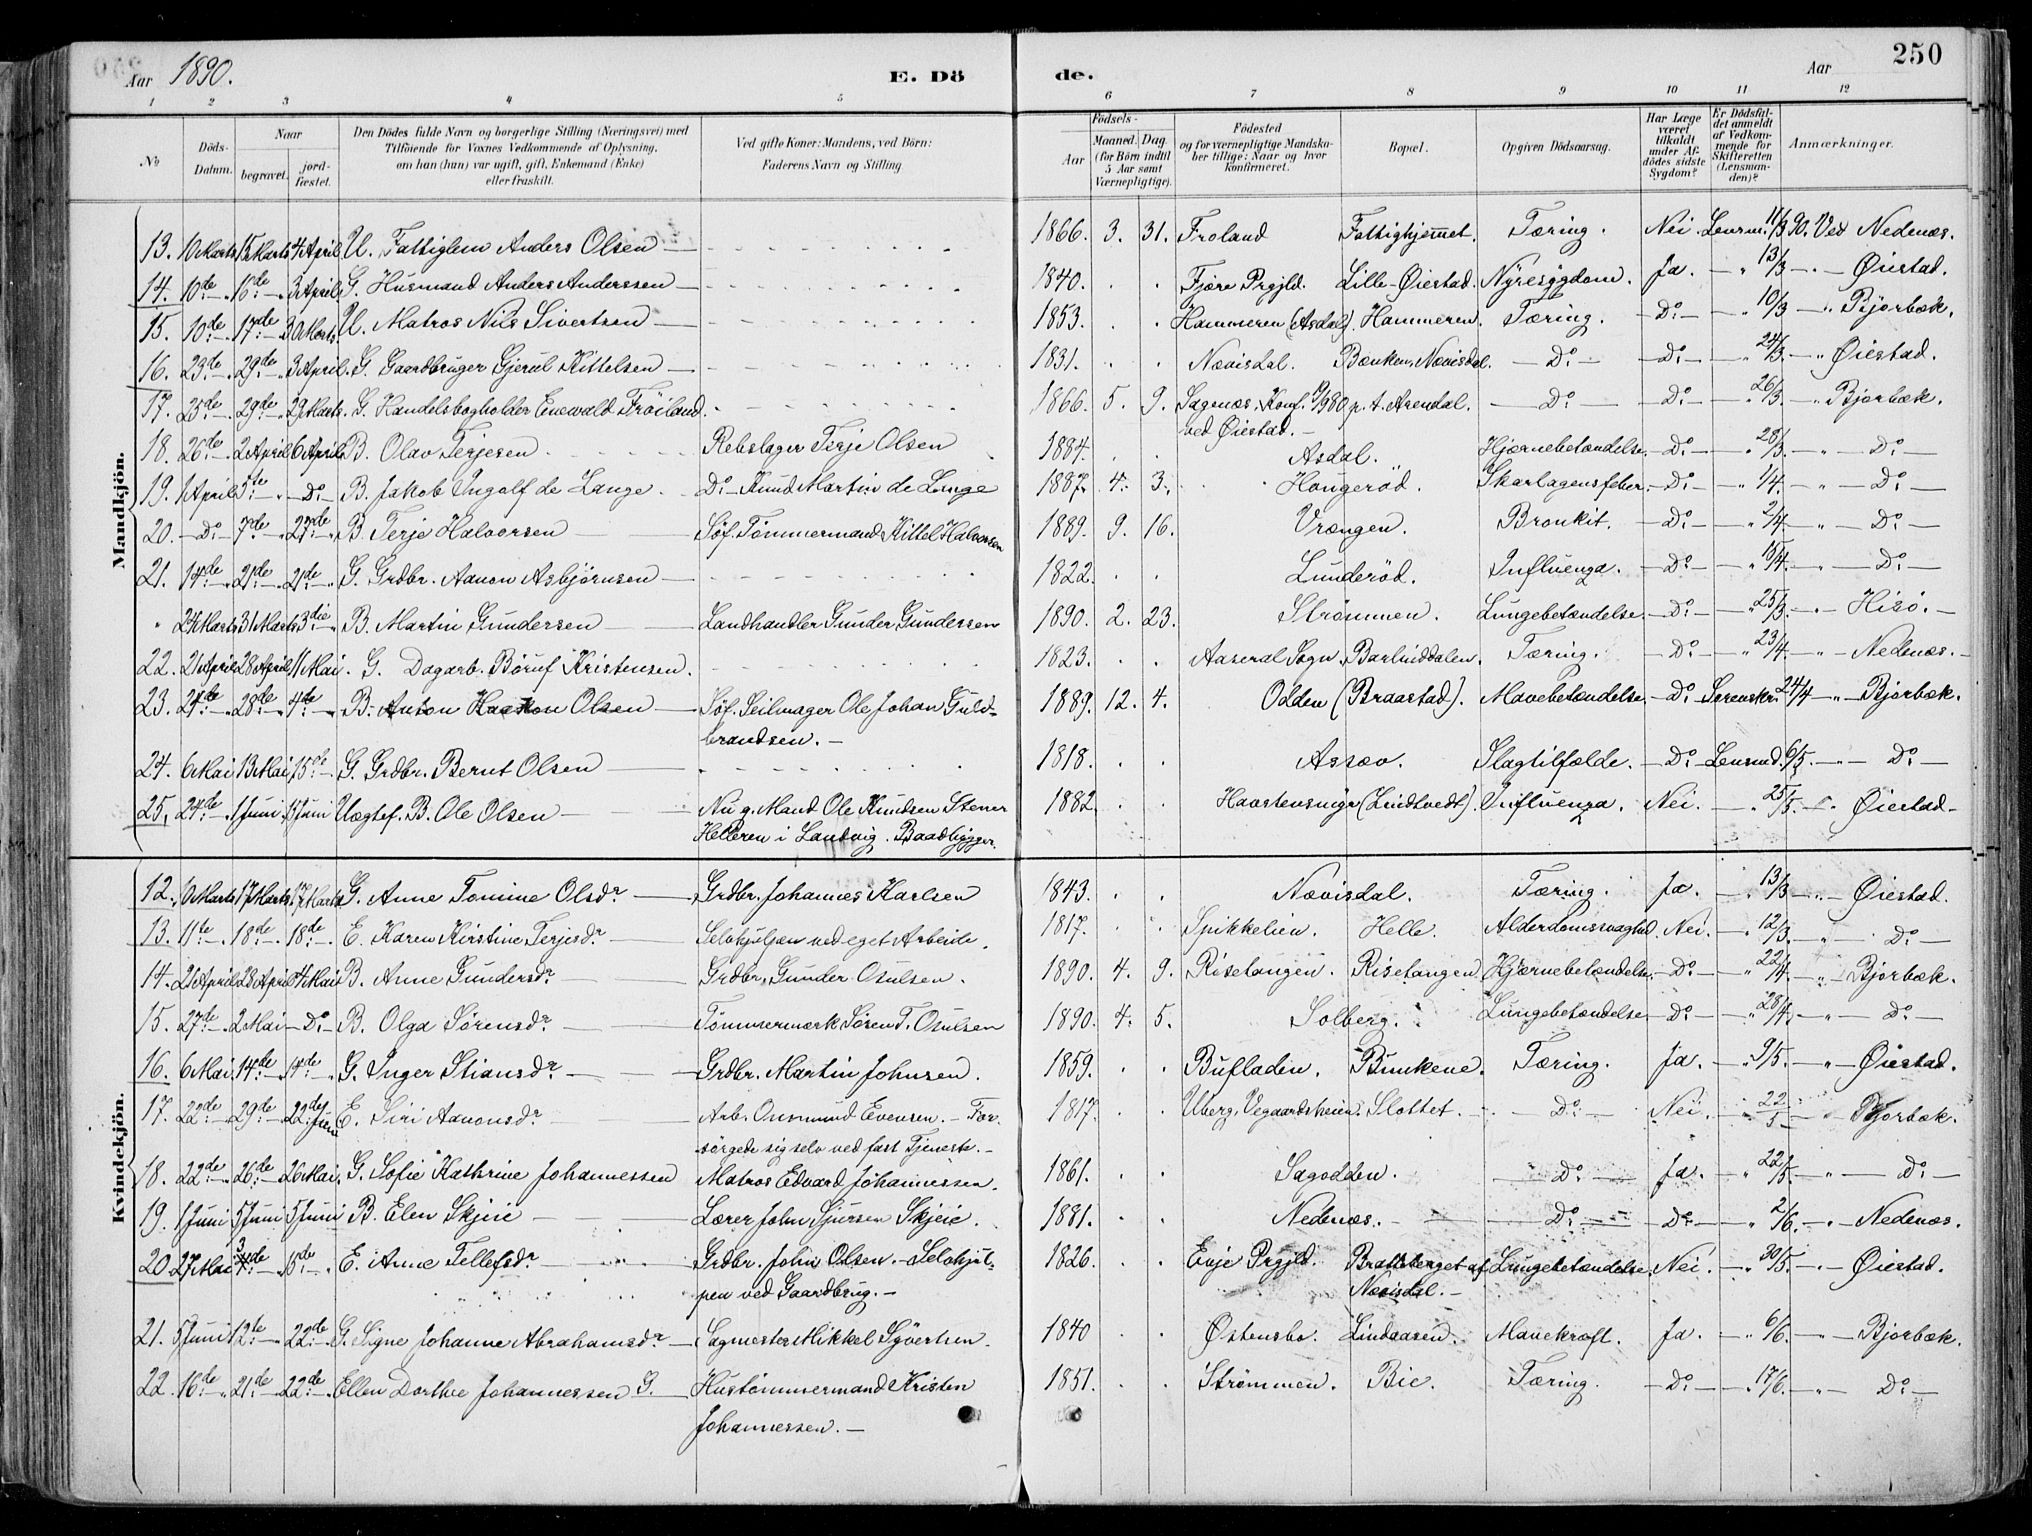 250
Aar 1890. E. Dö de. Aar
1 2 3 4 5 6 7 8 9 10 11 12
No Döds-Datum. Naar begravet. jord-fæstet. Den Dödes fulde Navn og borgerlige Stilling (Næringsvei) med Tilföiende for Voxnes Vedkommende af Oplysning, om han (hun) var ugift, gift, Enkemand (Enke) eller fraskilt. Ved gifte Koner: Mandens, ved Börn: Faderens Navn og Stilling Födsels- Aar Maaned. Dag. (for Börn indtil 5 Aar samt Værnepligtige). Födested og for værnepligtige Mandskaber tillige: Naar og hvor konfirmeret. Bopæl. Opgiven Dödsaarsag. Har Læge været tilkaldt under Afdödes sidste Sygdom? Er Dödsfaldet anmeldt af Vedkommende for Skifteretten (Lensmanden)? Anmærkninger.
Mandkjön.
13. 10 Marts 15 Marts 4 April U. Fattiglem Anders Olsen — 1866. 3. 31. Froland Fattighjemmet. Tæring. Nei. Lensm. 11/3 90. Ved Nedenæs.
14. 10de — 16de — 3 April G. Husmand Anders Anderssen — 1840. Fjære Prgjld. Lille-Øiestad. Nyresygdom. Ja. — " 13/3 — " — Øiestad.
15. 10de — 17de — 30 Marts. U. Matros Nils Sivertsen — 1853. Hammeren (Asdal). Hammeren. Tæring. Do — — " 10/3 — " Bjorbæk.
16. 23de — 29de — 3 April. G. Gaardbruger Gjerul Kittelsen — 1831. Nævisdal. Bænken, Nævisdal. — Do — Do — — " 24/3 — " Øiestad.
17. 25de — 29de — 29 Marts. G. Handelsbogholder Enewald Frøiland. 1866. 5. 9. Sagenæs. Konf. p. t. Arendal. — Do — Do — — " 26/3. — " Bjorbæk.
ved Øiestad. —
18. 26de — 2 April 6 April B. Olav Terjesen Rebslager Terje Olsen 1884. Asdal. Hjærnebetændelse. Do — — " 28/3. — " — Do —
19. 1 April 5te — " — Do — B. Jakob Ingolf de Lange. Do — Knud Martin de Lange 1887. 4. 3. Hangerød. Skarlagensfeber. Do — — " 1/4. — " — Do —
20. — Do — 7de — 27de — B. Terje Halvorsen — Søf. Tømmermand Kittel Halvorsen 1889. 9. 16. Vrængen. Bronkit. — Do — — " 2/4. — " — Do —
21. 14de — 21de — 21de — G. Grdbr. Aanon Asbjørnsen — 1822. Lunderød. Influenza. — Do — — " 15/4. — Do —
" 24 Marts 31 Marts 13die — B. Martin Gundersen — Landhandler Gunder Gundersen 1890. 2. 23. Strømmen. Lungebetændelse. — Do — — " 25/3. — " — Hisø. —
22. 21 April 28 April 11 Mai. G. Dagarb. Børuf Kristensen. 1823. Aaseral Sogn. Barlinddalen. Tæring. Do — — " 23/4. — " — Nedenæs. —
23. 21de — 28de — 4de — B. Anton Haakon Olsen — Søf. Seilmager Ole Johan Guld- 1889. 12. 4. Odden (Braastad). Mavebetændelse. — Do — Sorenskr. 24/4 — " — Bjorbæk.
brandsen. —
24. 6 Mai 13 Mai 15de — G. Grdbr. Bernt Olsen — 1818. Assæv. Slagtilfælde. — Do — Lensmd. 6/5. — " — Do —
25. 24de — 1 Juni. Juni Uægtef. B. Ole Olsen — Nu g. Mand Ole Knudsen Stener 1882 Havstensmyr (Lindtvedt). Influenza. Nei. — " 25/5. — Øiestad —
Helleren i Landvig. Baadbygger.
Kvindekjön.
12. 10 Marts 17 Marts. 17 Marts G. Anne Tomine Olsdr. — Grdbr. Johannes Karlsen 1843. Nævisdal. Tæring. Ja. — " 13/3 — " — Øiestad.
13. 11te — 18de — 18de — E. Karen Kirstine Terjesdr. — Selvhjulpen ved eget Arbeide. 1817. Spikkelien. Helle. Alderdomssvaghed. Nei. — " 12/3. — " — Do —
14. 21 April 28 April 4 Mai B. Anne Gundersdr. — Grdbr. Gunder Osulsen. 1890. 4. 9. Risetangen. Risetangen. Hjærnebetændelse. — Do — — " 22/4 — " Bjorbæk.
15. 27de — 2 Mai — Do — B. Olga Sørensdr. — Tømmermærk Søren T. Osulsen 1890. 4. 5. Solberg. Lungebetændelse. Do — — " 28/4. — " — Do —
16. 6 Mai 14de — 14de — G. Inger Stiansdr. — Grdbr. Martin Johnsen. 1859. Bufladen. Bunkene. Tæring. Ja. — 9/5. — " Øiestad.
17. 22de — 29de — 22de Juni E. Siri Aanonsdr. — Arb. Onsmund Evensen. — For- 1817. Uberg, Vegaardsheien. Slottet. — Do — Nei. — 22/5 — " Bjorbæk.
sørgede sig selv ved fast Tjeneste. —
18. 22de — 26de — 26 Mai. G. Sofie Kathrine Johannessen Matros Edvard Johannessen. 1861. Sagodden. — Do — Ja. — " 22/5. — " — Do —
19. 1 Juni 5 Juni 5 Juni B. Elen Skjeie — Lærer John Sjursen Skjeie. 1881. Nedenæs. — — Do — Do — — " 2/6. — " — Nedenæs.
20. 27 Mai 3de — 15de — E. Anne Tellefsdr. — Grdbr. John Olsen. — Selvhjul- 1826. Evje Prgjld. Bratteberget af Lungebetændelse. Nei. — " 30/5. — " — Øiestad.
pen ved Gaardbrug. — Nævisdal. —
21. 5 Juni 12te — 22de — G. Signe Johanne Abrahamsdr. — Sagmester Mikkel Syvertsen. 1840 Østensbo. Lindaasen. Mavekræft. Ja. — " 6/6. — " — Bjorbæk.
22. 16de — 21de — 22de — Ellen Dorthe Johannessen G. — Hustømmermand Kristen 1851. Strømmen. Bie. Tæring. — Do — — " 17/6. — " — Do —
Johannessen. —